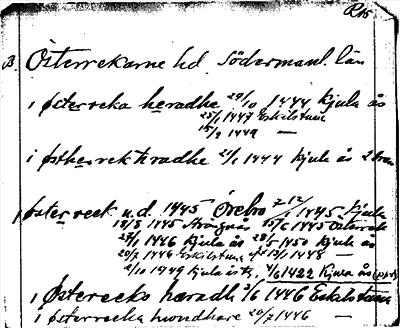 R16
B. Österrekarne hd. Södermanl. län
i østerreka heradhe 29/10 1444 Kjula ås
25/1 1447 Eskilstuna
15/2 1449 —
i østherrekthradhe 21/1 1444 Kjula ås
østerreck u.d. 1445 Örebro 1445 Kjula
18/8 1445 Strängnäs 15/6 1445 Österrek
27/1 1446 Kjula ås 28/1 1450 Kjula ås
20/2 1446 Eskilstuna 13/1 1448 —
2/10 1449 Kjula ås 4/6 1422 Kjula ås
i Østerecko hæradh 3/6 1446 Eskilstuna
i østerrecka hwndhare 20/2 1446 —